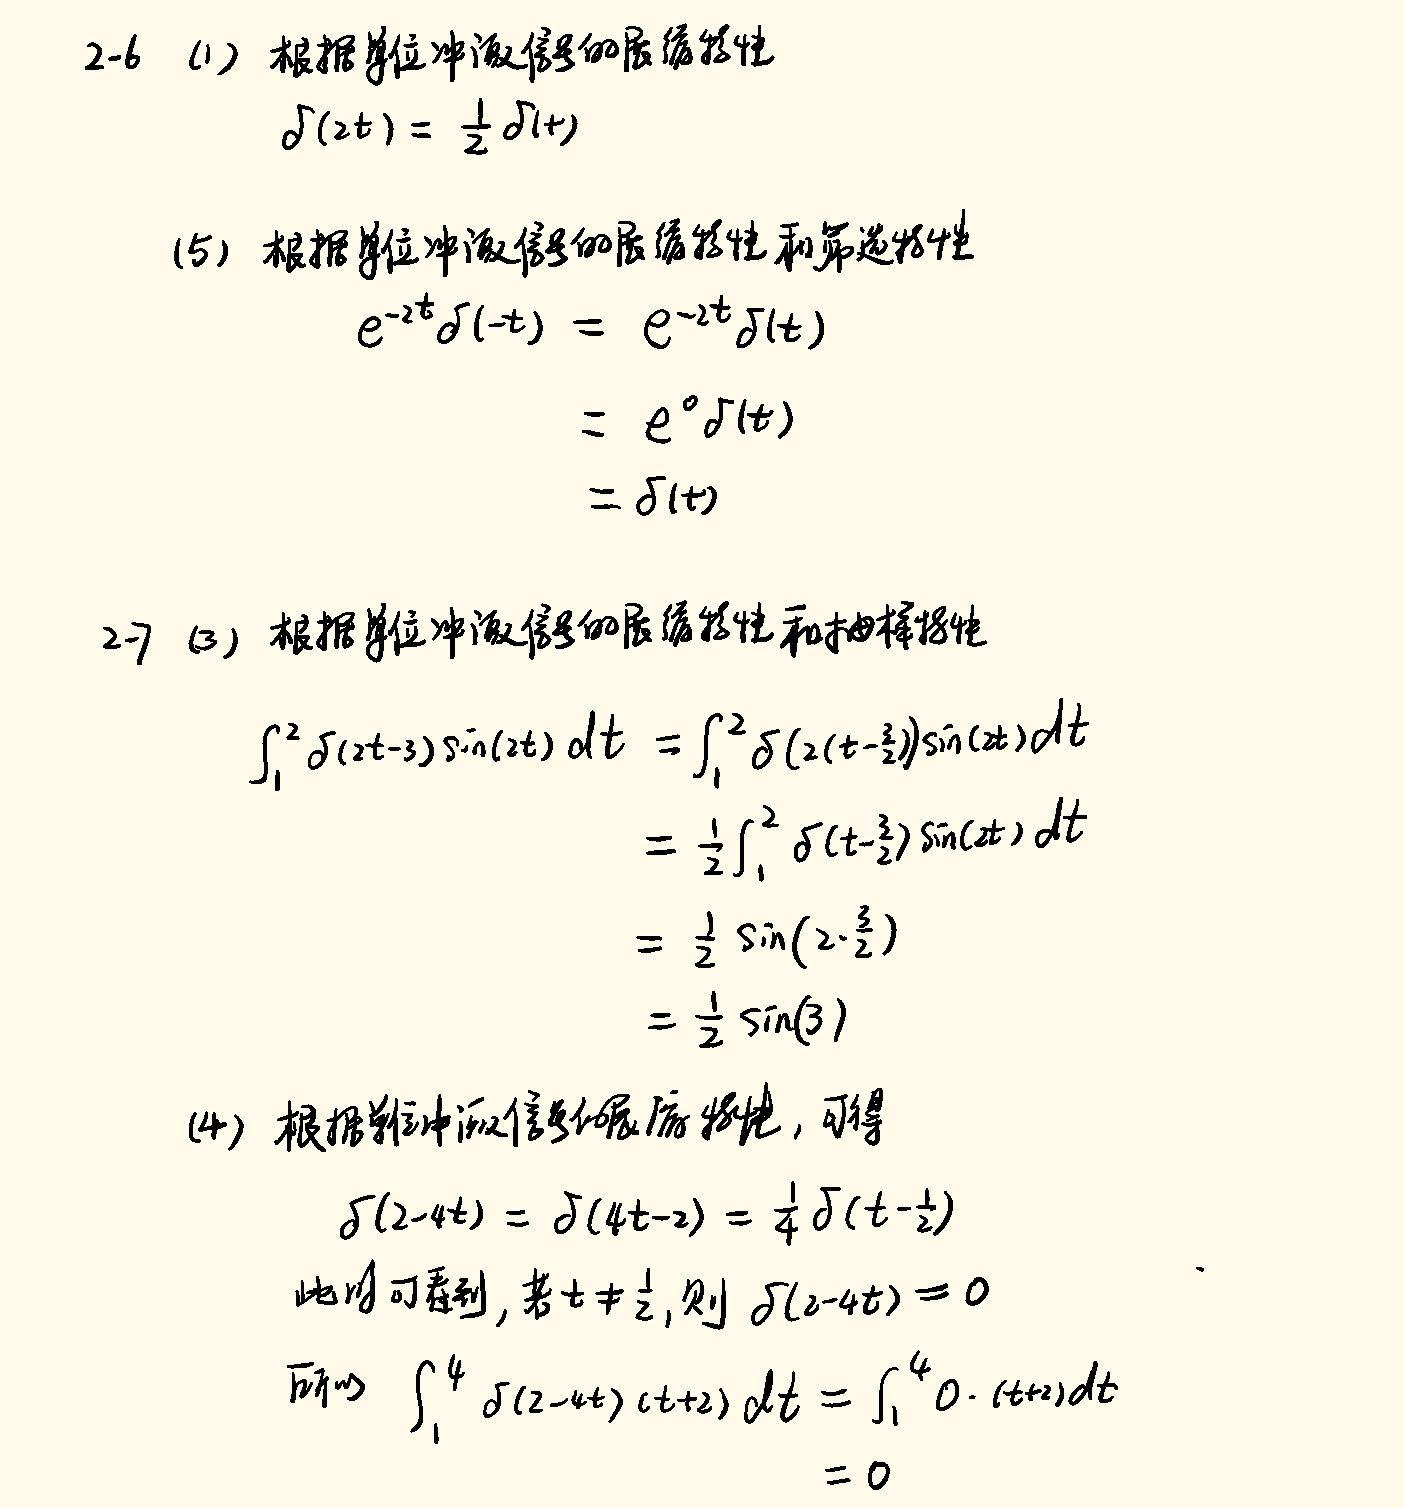 2-6 (1) 根据单位冲激信号的展缩特性
δ(2t) = 1/2 δ(t)
(5) 根据单位冲激信号的展缩特性和筛选特性
e^{-2t} δ(-t) = e^{-2t} δ(t)
= e^0 δ(t)
= δ(t)
2-7 (3) 根据单位冲激信号的展缩特性和抽样特性
∫_1^2 δ(2t-3) sin(2t) dt = ∫_1^2 δ(2(t-3/2)) sin(2t) dt
= 1/2 ∫_1^2 δ(t-3/2) sin(2t) dt
= 1/2 sin(2·3/2)
= 1/2 sin(3)
(4) 根据单位冲激信号的展缩特性, 可得
δ(2-4t) = δ(4t-2) = 1/4 δ(t-1/2)
此时可看到, 若 t ≠ 1/2, 则 δ(2-4t) = 0
所以 ∫_1^4 δ(2-4t) (t+2) dt = ∫_1^4 0·(t+2) dt
= 0